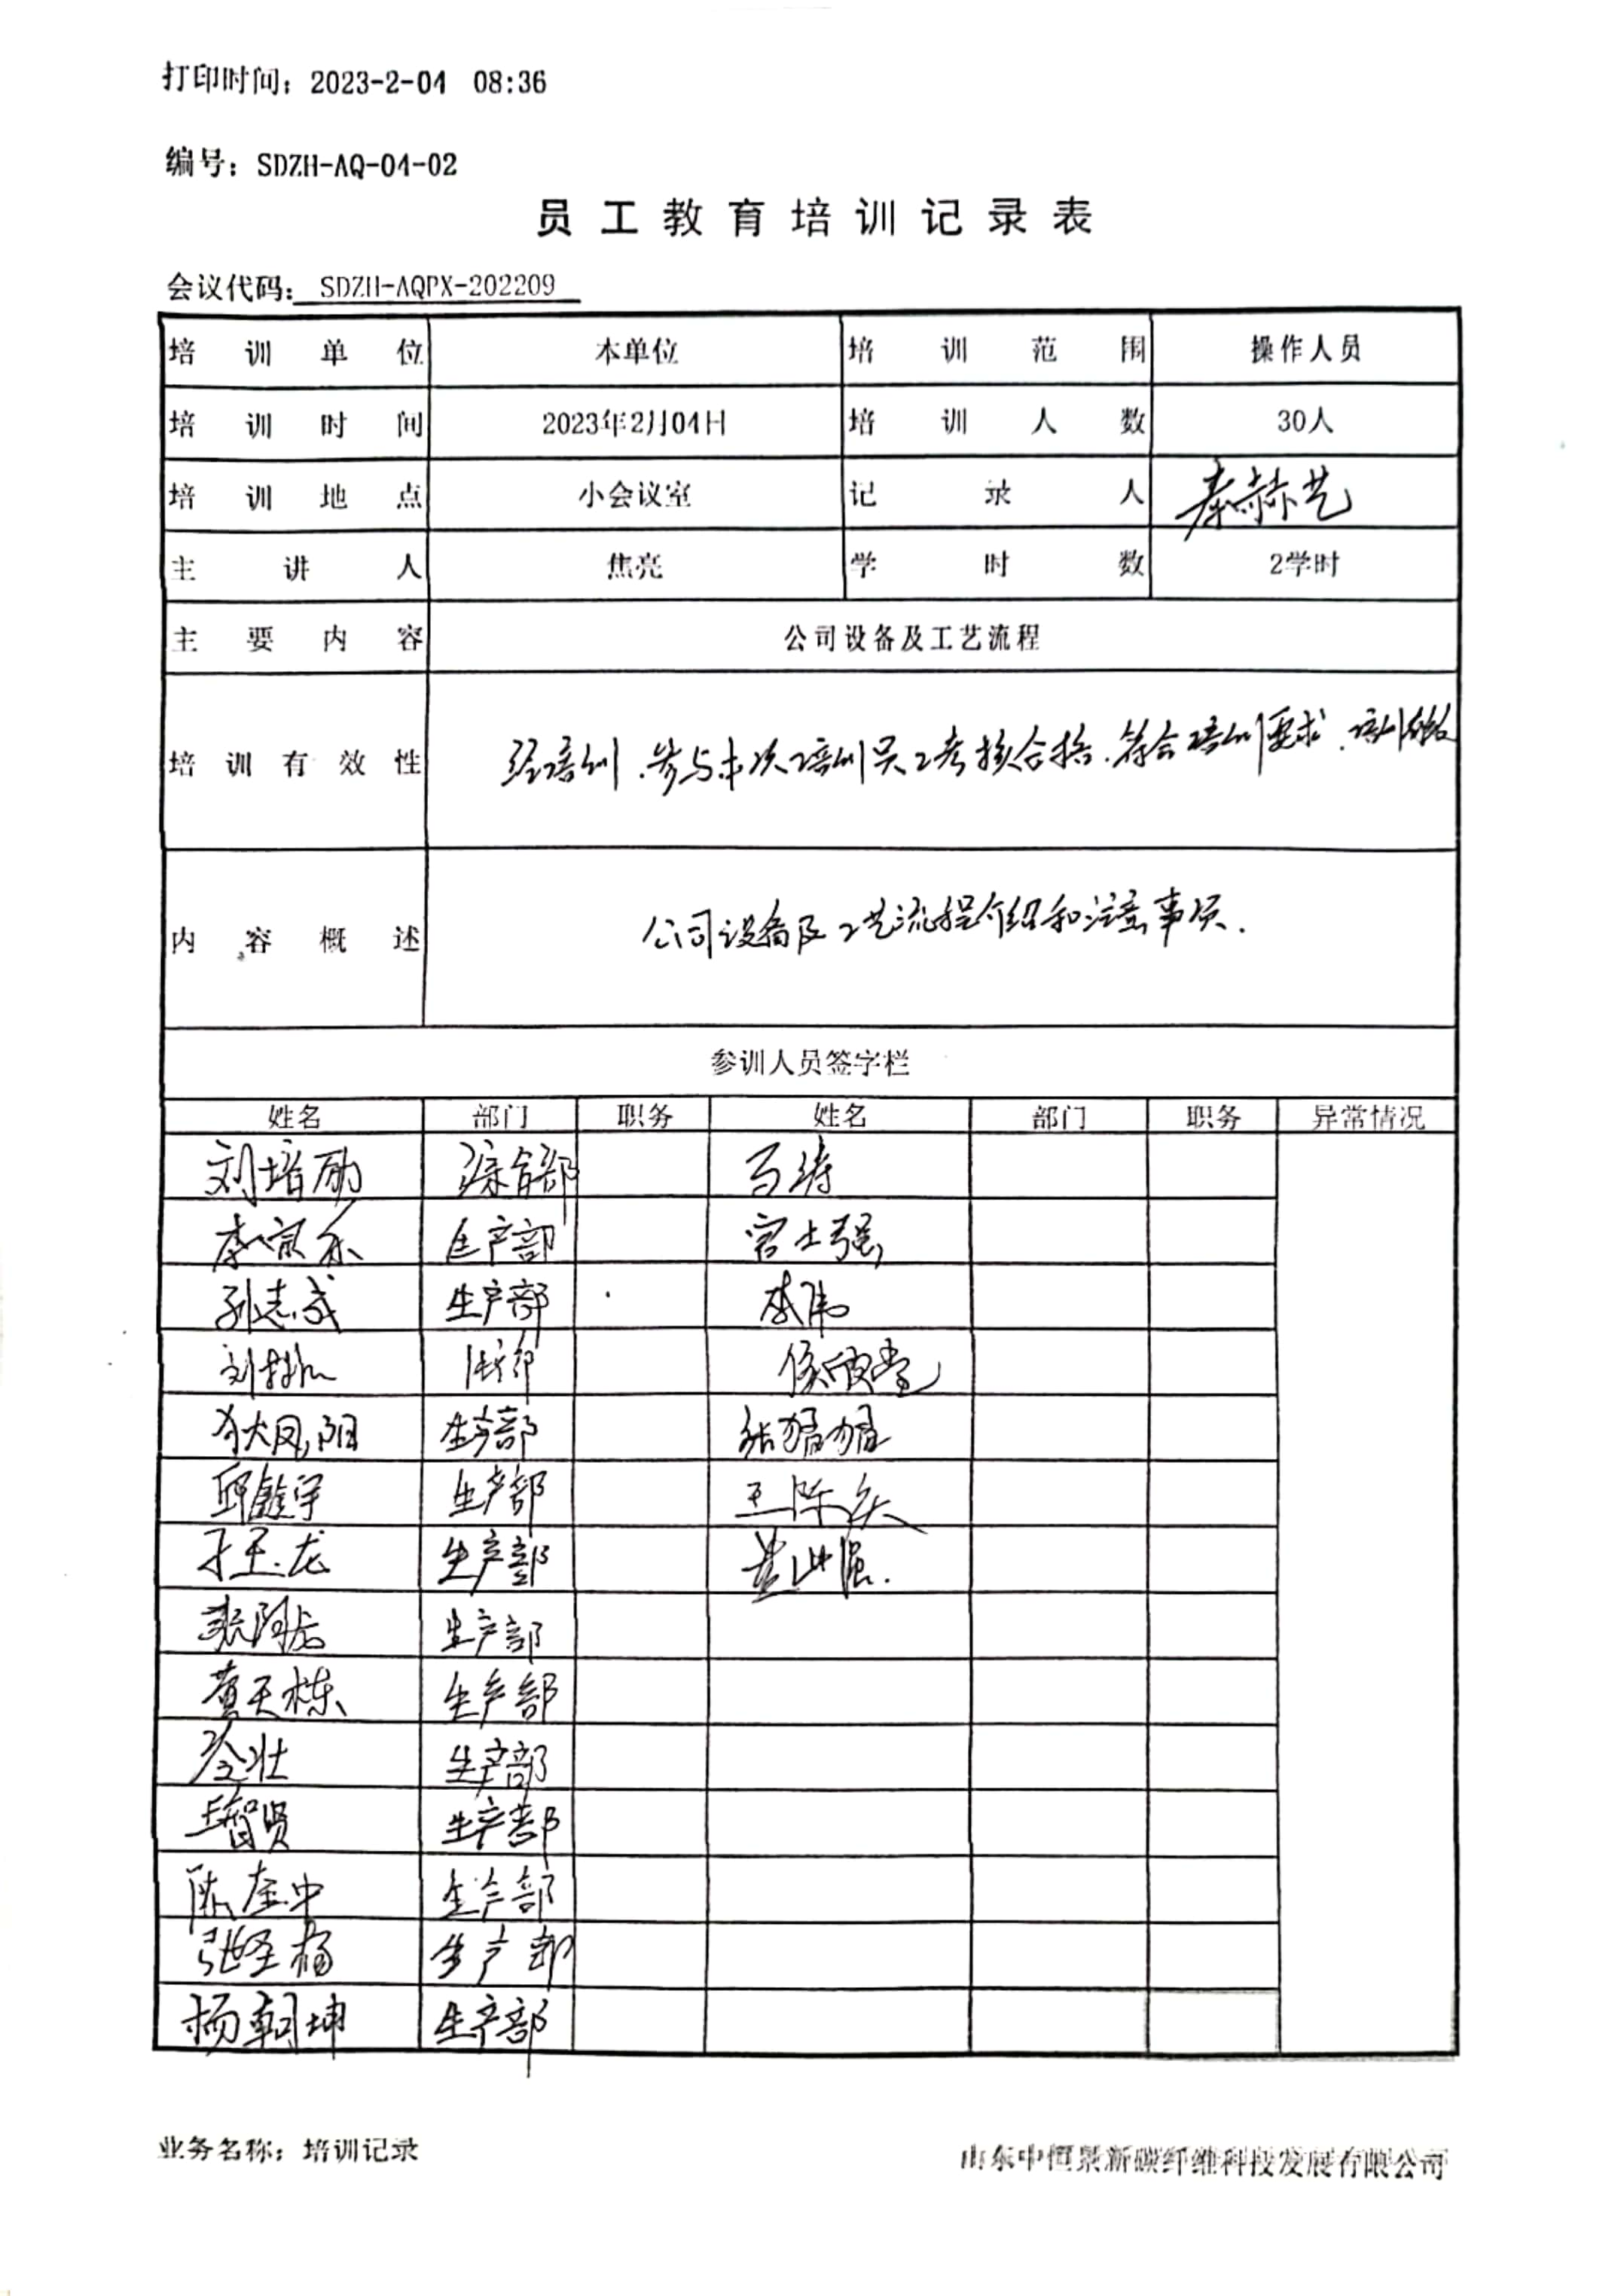 打印时间：2023-2-04 08:36
编号：SDZH-AQ-04-02
员工教育培训记录表
会议代码：SDZH-AQPX-202209
培训单位 本单位 培训范围 操作人员
培训时间 2023年2月04日 培训人数 30人
培训地点 小会议室 记录人 秦赫艺
主讲人 焦亮 学时数 2学时
主要内容 公司设备及工艺流程
培训有效性 经培训.参与本次培训员工考核合格.符合培训要求.培训有效
内容概述 公司设备及工艺流程介绍和注意事项.
参训人员签字栏
姓名 部门 职务 姓名 部门 职务 异常情况
刘培励 综合部 马涛
生产部 宫士强
孙志成 生产部 李伟
侯欣堂
狄凤阳 生产部
邱鑫宇 生产部
于玉龙 生产部
生产部
黄天栋 生产部
生产部
王智贤 生产部
陈奎中 生产部
张圣杨 生产部
杨朝坤 生产部
业务名称：培训记录 山东中恒景新碳纤维科技发展有限公司